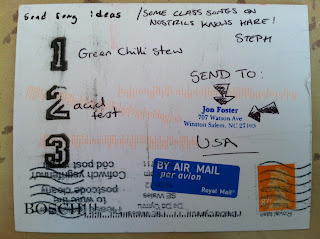 Send song ideas / SOME CLASS SONGS ON
NOSTRILS KNOWS HARE!
STEPH
1 Green Chilli Stew
SEND TO:
Jon Foster
707 Watson Ave
Winston Salem, NC 27103
2 acid
fest
USA
3
BY AIR MAIL
par avion
Royal Mail
BOSCH!!!
SE Wales
postcode clearly